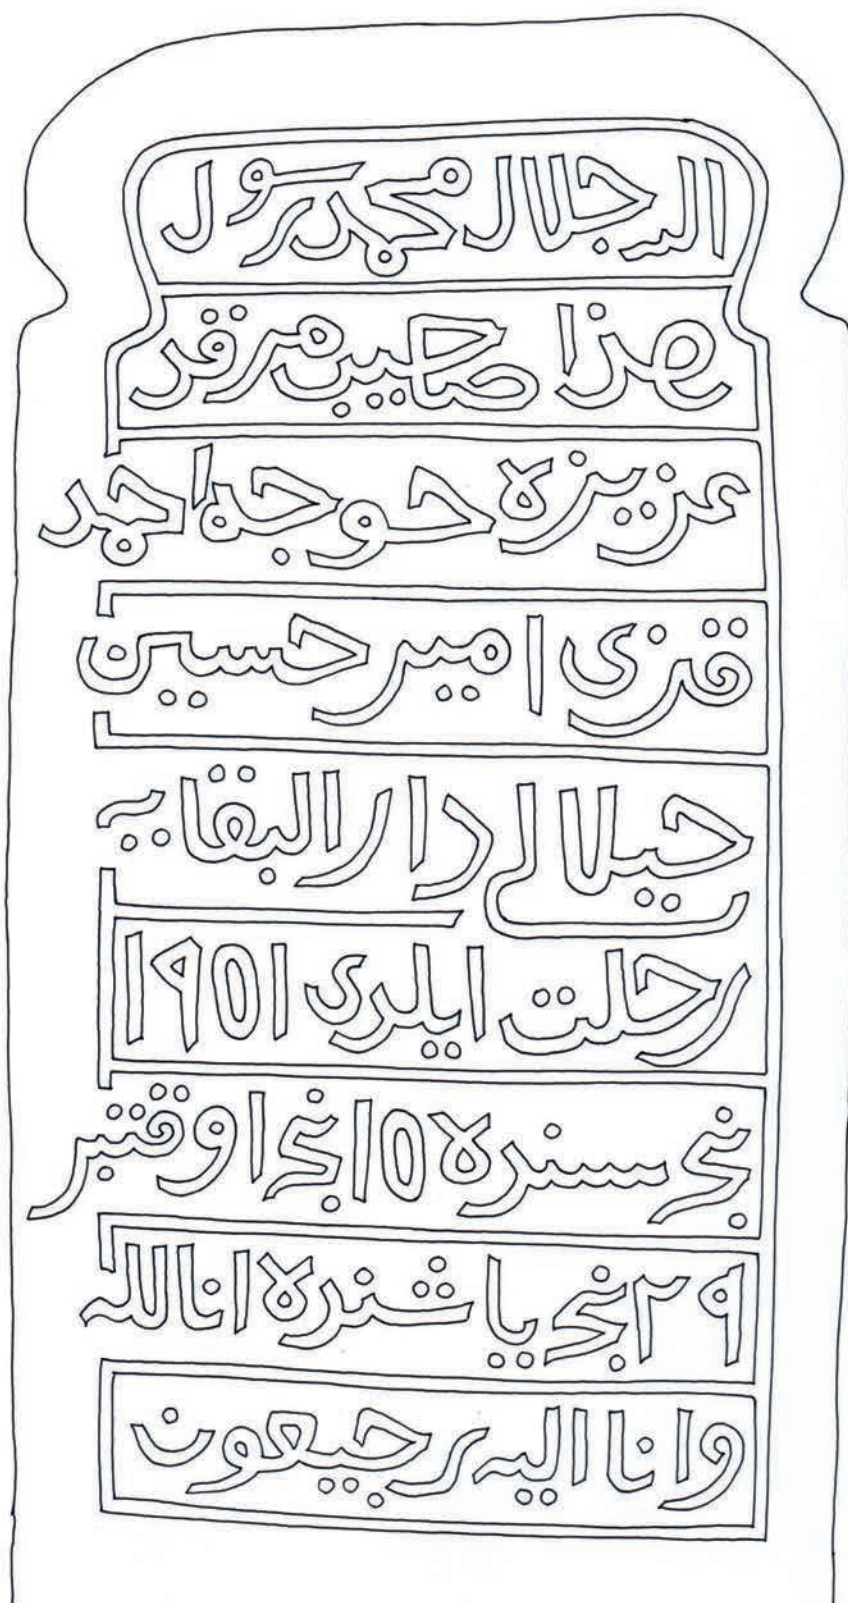 الله جلال محمد رسول
هذا صاحيب مرقد
عزيزه حوجه احمد
قزى امير حسين
حيلالى دار البقايه
رحلت ايلدى ١٩٥١
نجى سنده ١٥ نجى اوقتبر
٢٩ نجى ياشنده انا لله
وانا اليه رجيعون